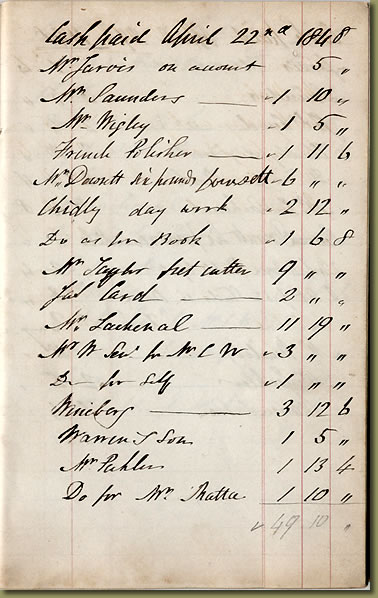 Cash paid April 22nd 1848
Mr Jarvis on account 5 "
Mr Saunders — 1 10 "
Mr Wigley 1 5 "
French Polisher — 1 11 6
Mr Dowsett six pounds 6 " "
Chidly day work 2 12 "
Do as for Book 1 6 8
Mr Taylor fret cutter 9 " "
Jas Card — 2 " "
Mr Lachenal — 11 19 "
Mr W Senr for Mr C W 3 " "
Do for Self 1 " "
Wineberg — 3 12 6
Warren & Son 1 5 "
Mr 1 13 4
Do for Mr 1 10 "
49 10 "